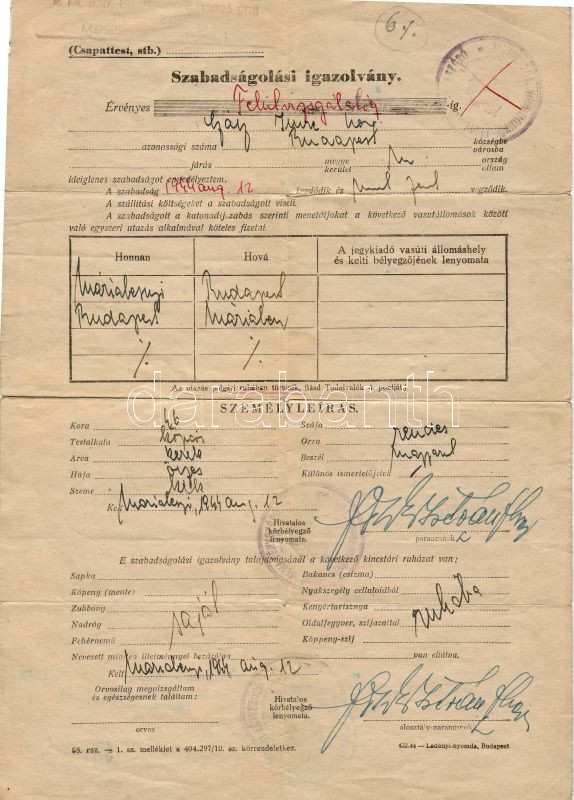 6%
(Csapattest, stb.)
Szabadságolási igazolvány.
Érvényes Felülvizsgálatig -ig.
Imre
Budapest
azonossági száma községbe városba
járás megye kerület ország állam
ideiglenes szabadságot engedélyeztem.
A szabadság 1944 aug. 12 kezdődik és végződik.
A szállítási költségeket a szabadságolt viseli.
A szabadságolt a katonadíjszabás szerinti menetdíjakat a következő vasútállomások között
való egyszeri utazás alkalmával köteles fizetni.
Honnan Hová A jegykiadó vasúti állomáshely
és kelti bélyegzőjének lenyomata
Budapest
Budapest
Az utazás polgári ruhában történik, (lásd Tudnivalók 4. pontját)
darabanth
SZEMÉLYLEÍRÁS.
Kora Szája rendes
Testalkata Orra
Arca kerek Beszél magyarul
Haja őszes Különös ismertetőjelek
Szeme kék
Kelt 1944 aug. 12
Hivatalos
körbélyegző
lenyomata.
parancsnok
E szabadságolási igazolvány tulajdonosánál a következő kincstári ruházat van:
Sapka Bakancs (csizma)
Köpeny (mente) Nyakszegély celluloidból
Zubbony Kenyértarisznya
Nadrág saját Oldalfegyver, szíjazattal ruhába
Fehérnemű Köppeny-szíj
Nevezett minden illetménnyel bezárólag van ellátva.
Kelt 1944 aug. 12
Orvosilag megvizsgáltam
és egészségesnek találtam:
Hivatalos
körbélyegző
lenyomata.
orvos alosztály-parancsnok
98. rsz. — 1. sz. melléklet a 404.297/10. sz. körrendelethez. 422.44 — Ladányi-nyomda, Budapest